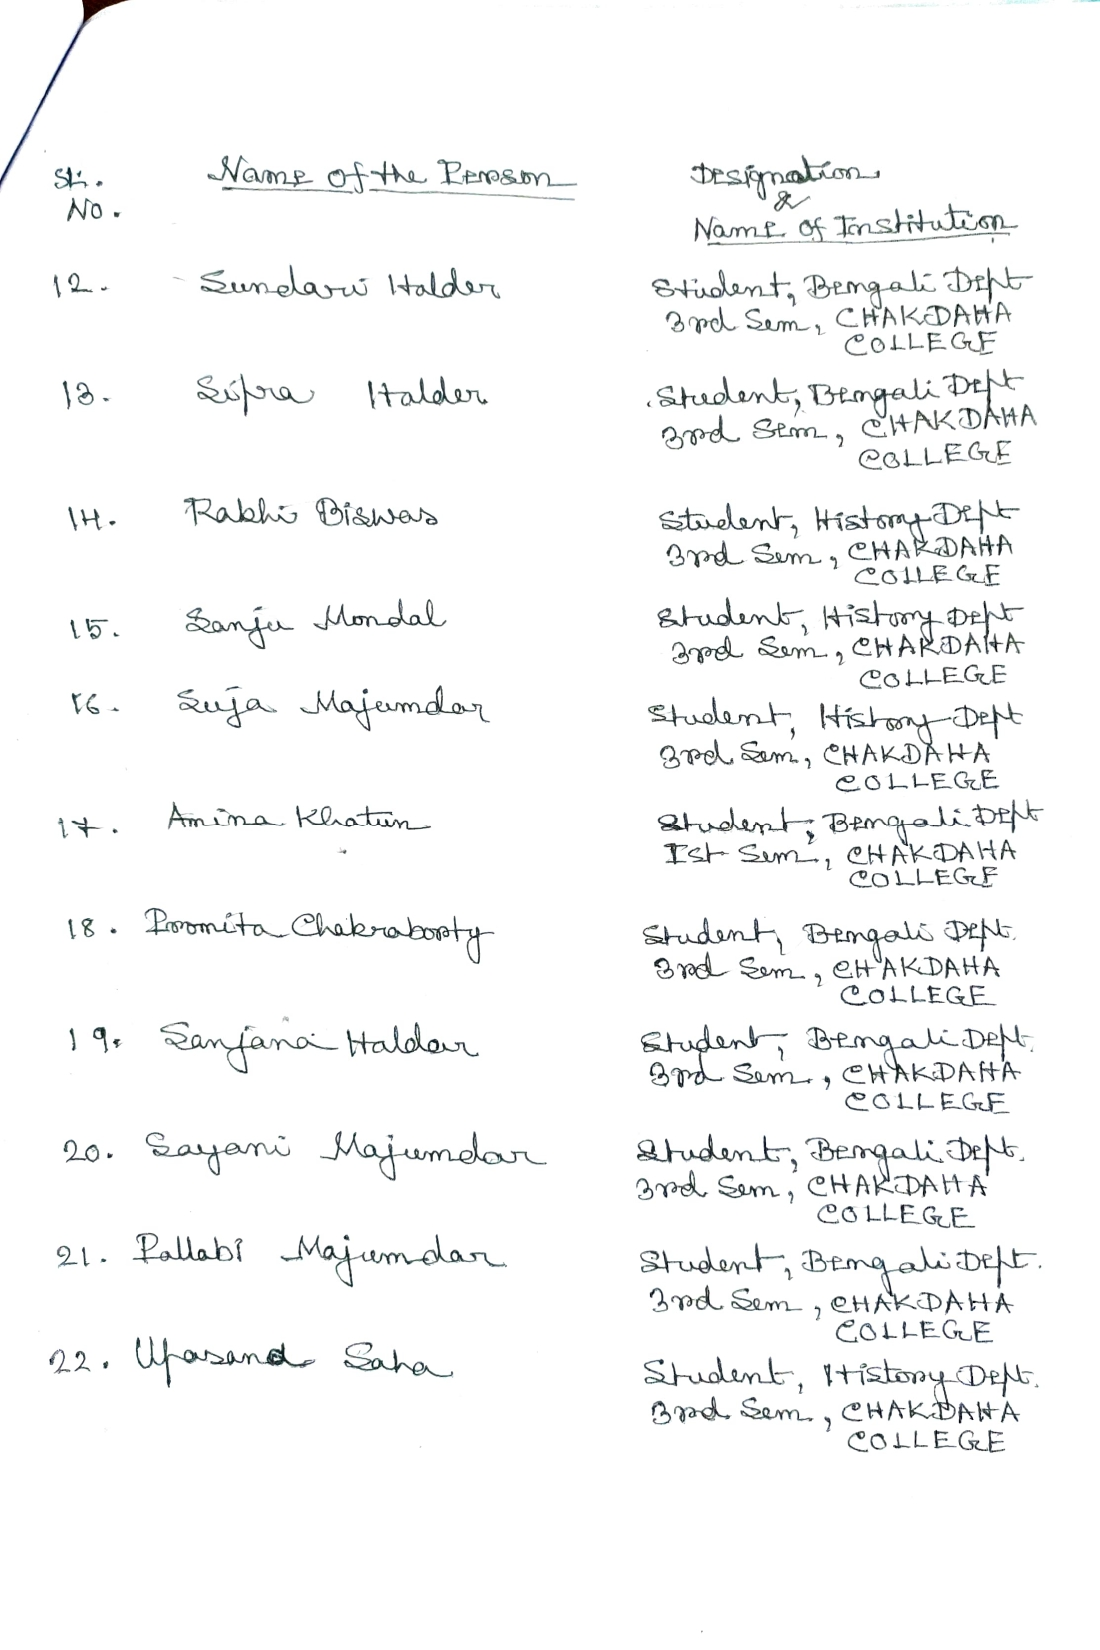 Sl. Name of the Person Designation
No. &
Name of Institution
12. Sundari Halder Student, Bengali Dept
3rd Sem, CHAKDAHA
COLLEGE
13. Sipra Halder Student, Bengali Dept
3rd Sem, CHAKDAHA
COLLEGE
14. Rakhi Biswas Student, History Dept
3rd Sem, CHAKDAHA
COLLEGE
15. Sanju Mondal Student, History Dept
3rd Sem, CHAKDAHA
COLLEGE
16. Suja Majumdar Student, History Dept
3rd Sem, CHAKDAHA
COLLEGE
17. Amina Khatun Student, Bengali Dept
Ist Sem, CHAKDAHA
COLLEGE
18. Promita Chakraborty Student, Bengali Dept.
3rd Sem, CHAKDAHA
COLLEGE
19. Sanjana Haldar Student, Bengali Dept.
3rd Sem, CHAKDAHA
COLLEGE
20. Sayani Majumdar Student, Bengali Dept.
3rd Sem, CHAKDAHA
COLLEGE
21. Pallabi Majumdar Student, Bengali Dept.
3rd Sem, CHAKDAHA
COLLEGE
22. Upasana Saha Student, History Dept.
3rd Sem, CHAKDAHA
COLLEGE